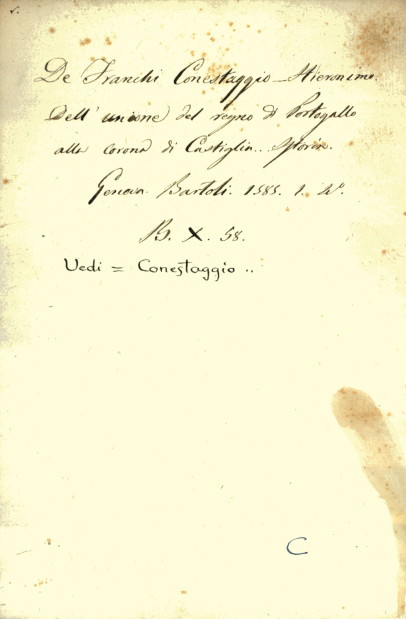 De Franchi Conestaggio - Hieronimo.
Dell' unione del regno di Portogallo
alla corona di Castiglia.. Istoria.
Genova. Bartoli. 1585. 1. 4º.
B. X. 58.
Vedi = Conestaggio ..
C